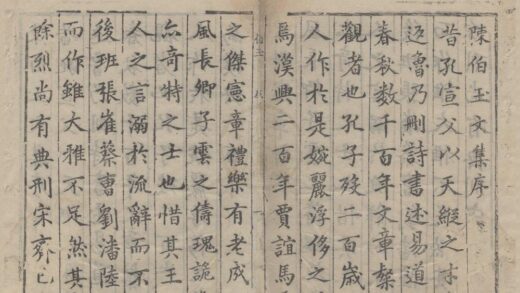 陳伯玉文集序
昔孔宣父以天縱之才
返魯乃刪詩書述易道
春秋数千百年文章粲
觀者也孔子歿二百歲
人作於是婉麗浮侈之
焉漢興二百年賈誼馬
之傑憲章禮樂有老成
風長卿子雲之儔瑰詭
亦奇特之士也惜其王
人之言溺於流辭而不
後班張崔蔡曹劉潘陸
而作雖大雅不足然其
餘烈尚有典刑宋齊已